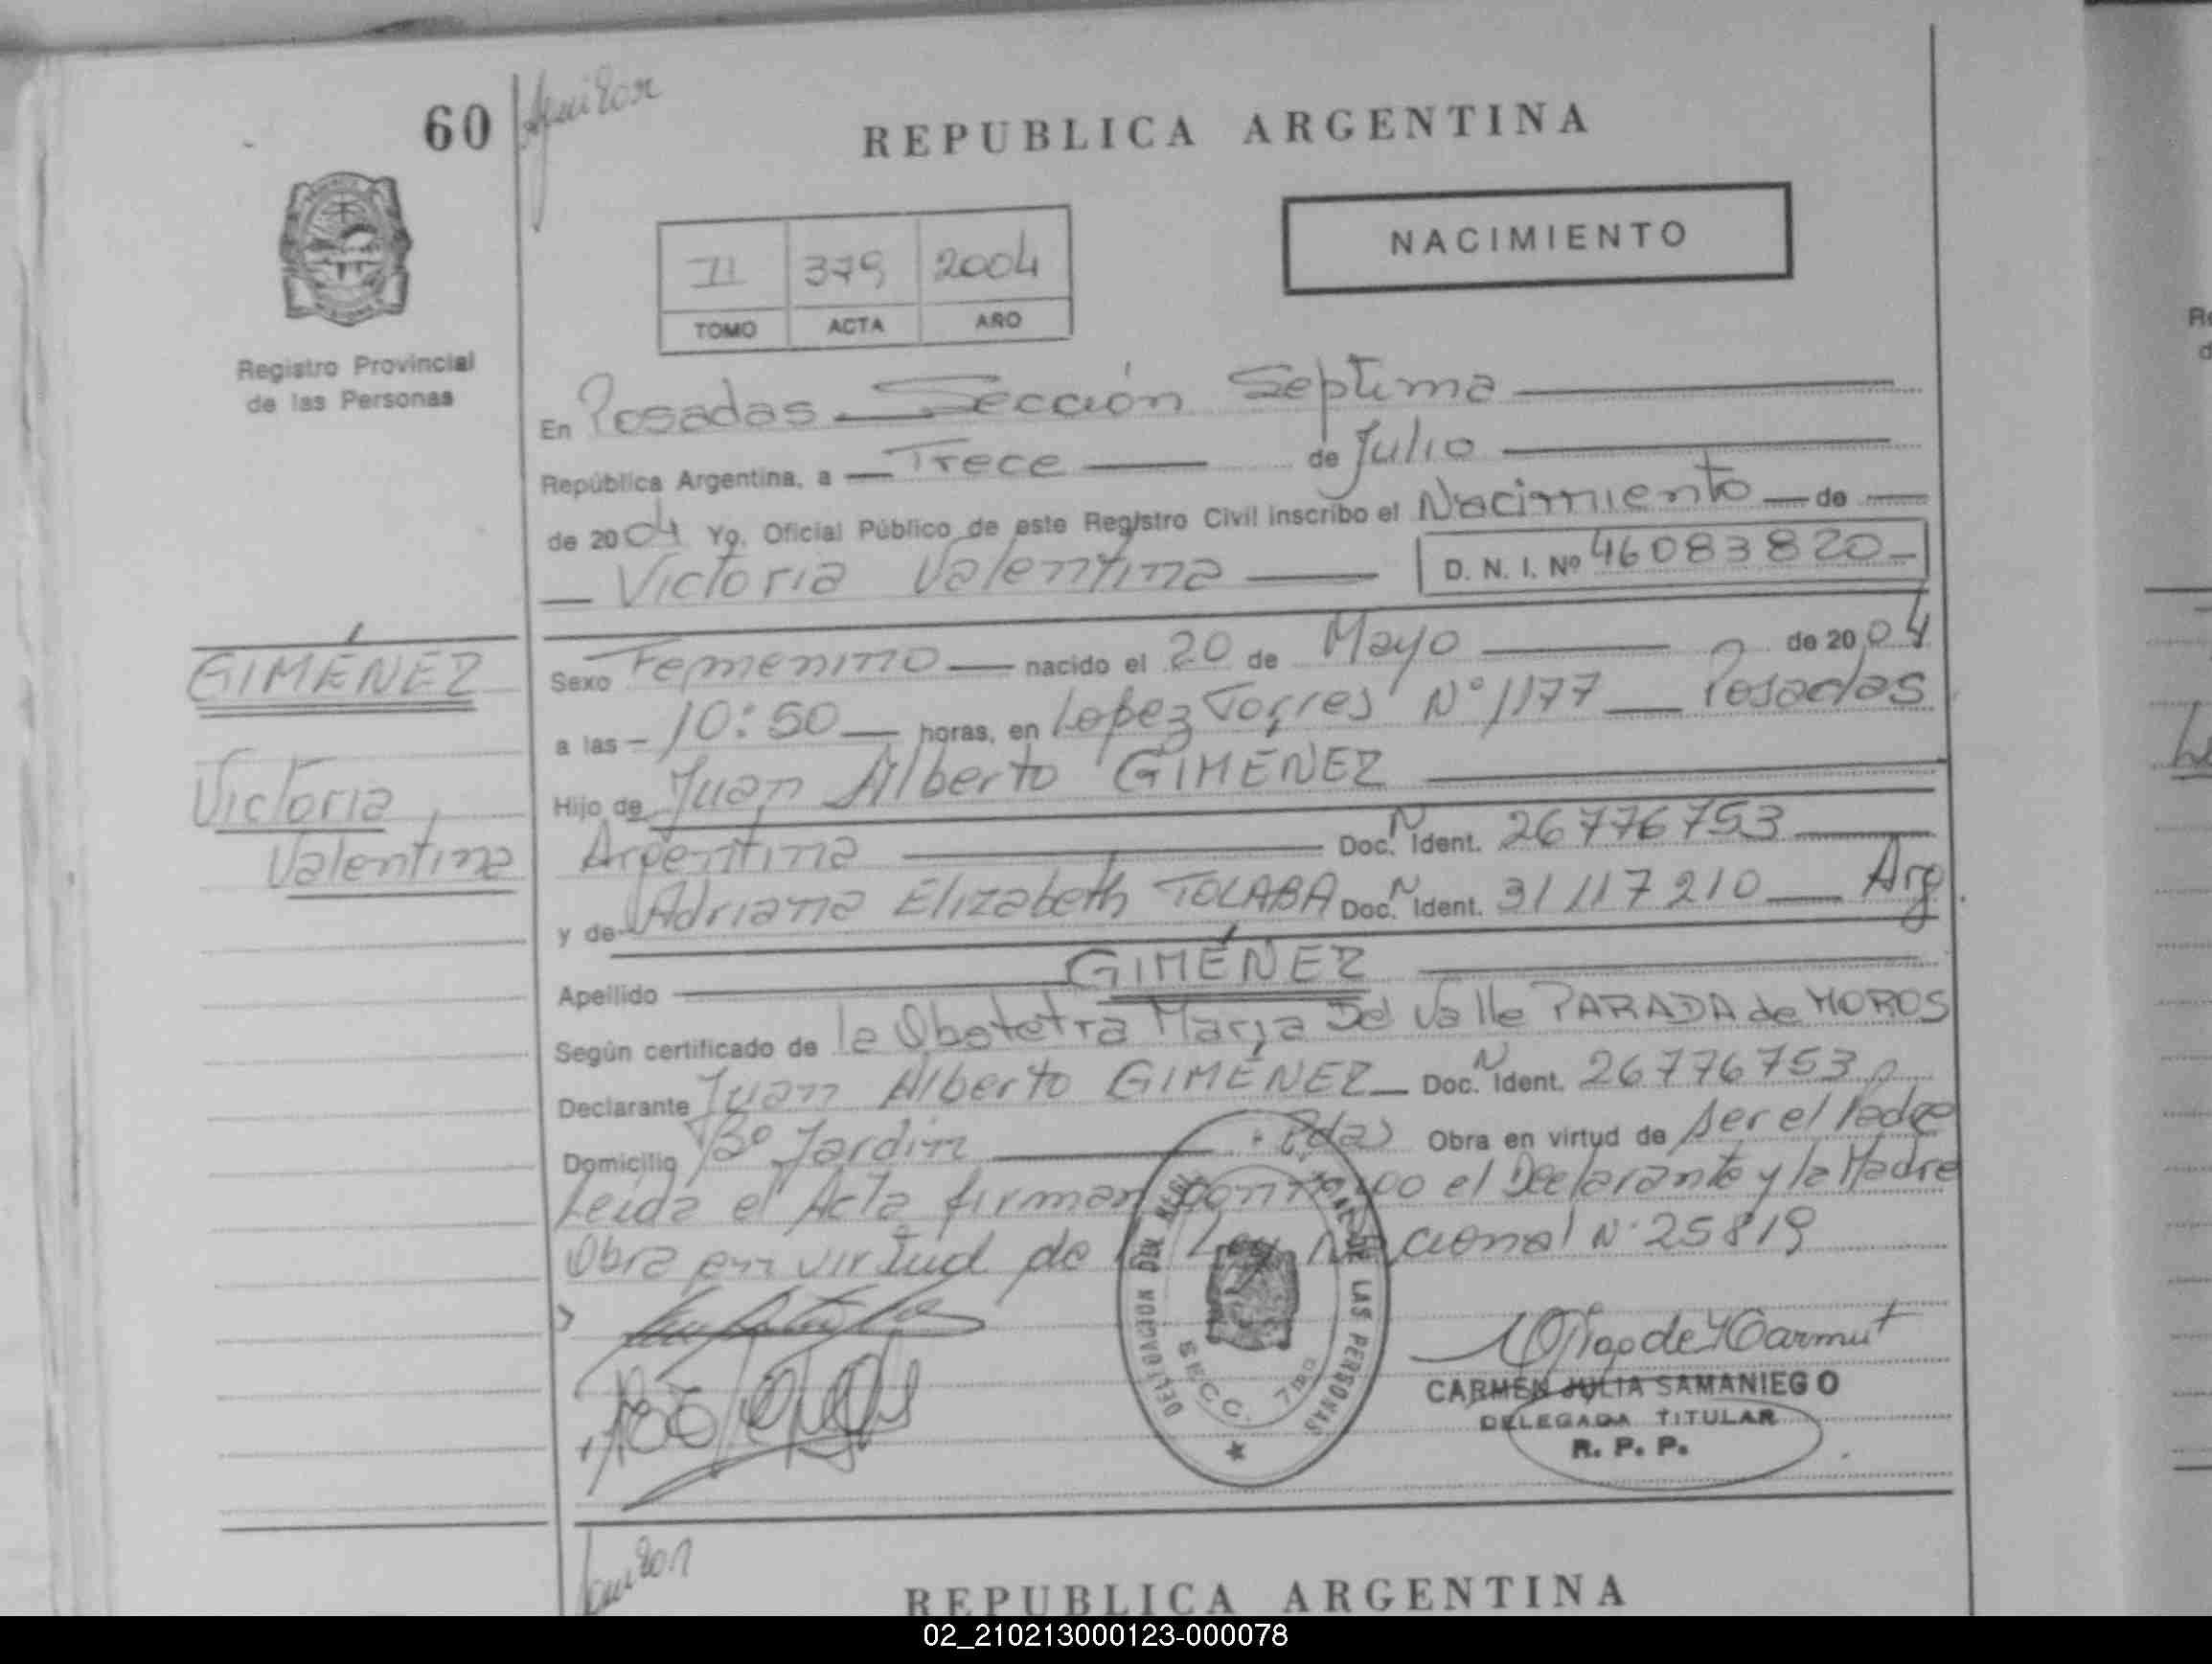 60
REPUBLICA ARGENTINA
NACIMIENTO
II 379 2004
TOMO ACTA AÑO
Registro Provincial
de las Personas
En Posadas Sección Septima
República Argentina, a Trece de Julio
de 2004 Yo, Oficial Público de este Registro Civil inscribo el Nacimiento de
Victoria Valentina D. N. I. Nº 46083820
GIMÉNEZ
Victoria
Valentina
Sexo Femenino nacido el 20 de Mayo de 2004
a las 10:50 horas, en Lopez Torres N° 1177 Posadas
Hijo de Juan Alberto GIMÉNEZ
Argentina Doc. N Ident. 26776753
y de Adriana Elizabeth TOLABA Doc. N Ident. 31117210 Arg.
Apellido GIMÉNEZ
Según certificado de la Obstetra Maria Del Valle PARADA de MOROS
Declarante Juan Alberto GIMÉNEZ Doc. N Ident. 26776753
Domicilio B° Jardin Pdas Obra en virtud de ser el Padre
Leida el Acta firman conmigo el Declarante y la Madre
Obra en virtud de Ley Nacional N° 25819
DELEGACION DEL REG. DE LAS PERSONAS
SECC. 7ma
CARMEN JULIA SAMANIEGO
DELEGADA TITULAR
R. P. P.
REPUBLICA ARGENTINA
02_210213000123-000078